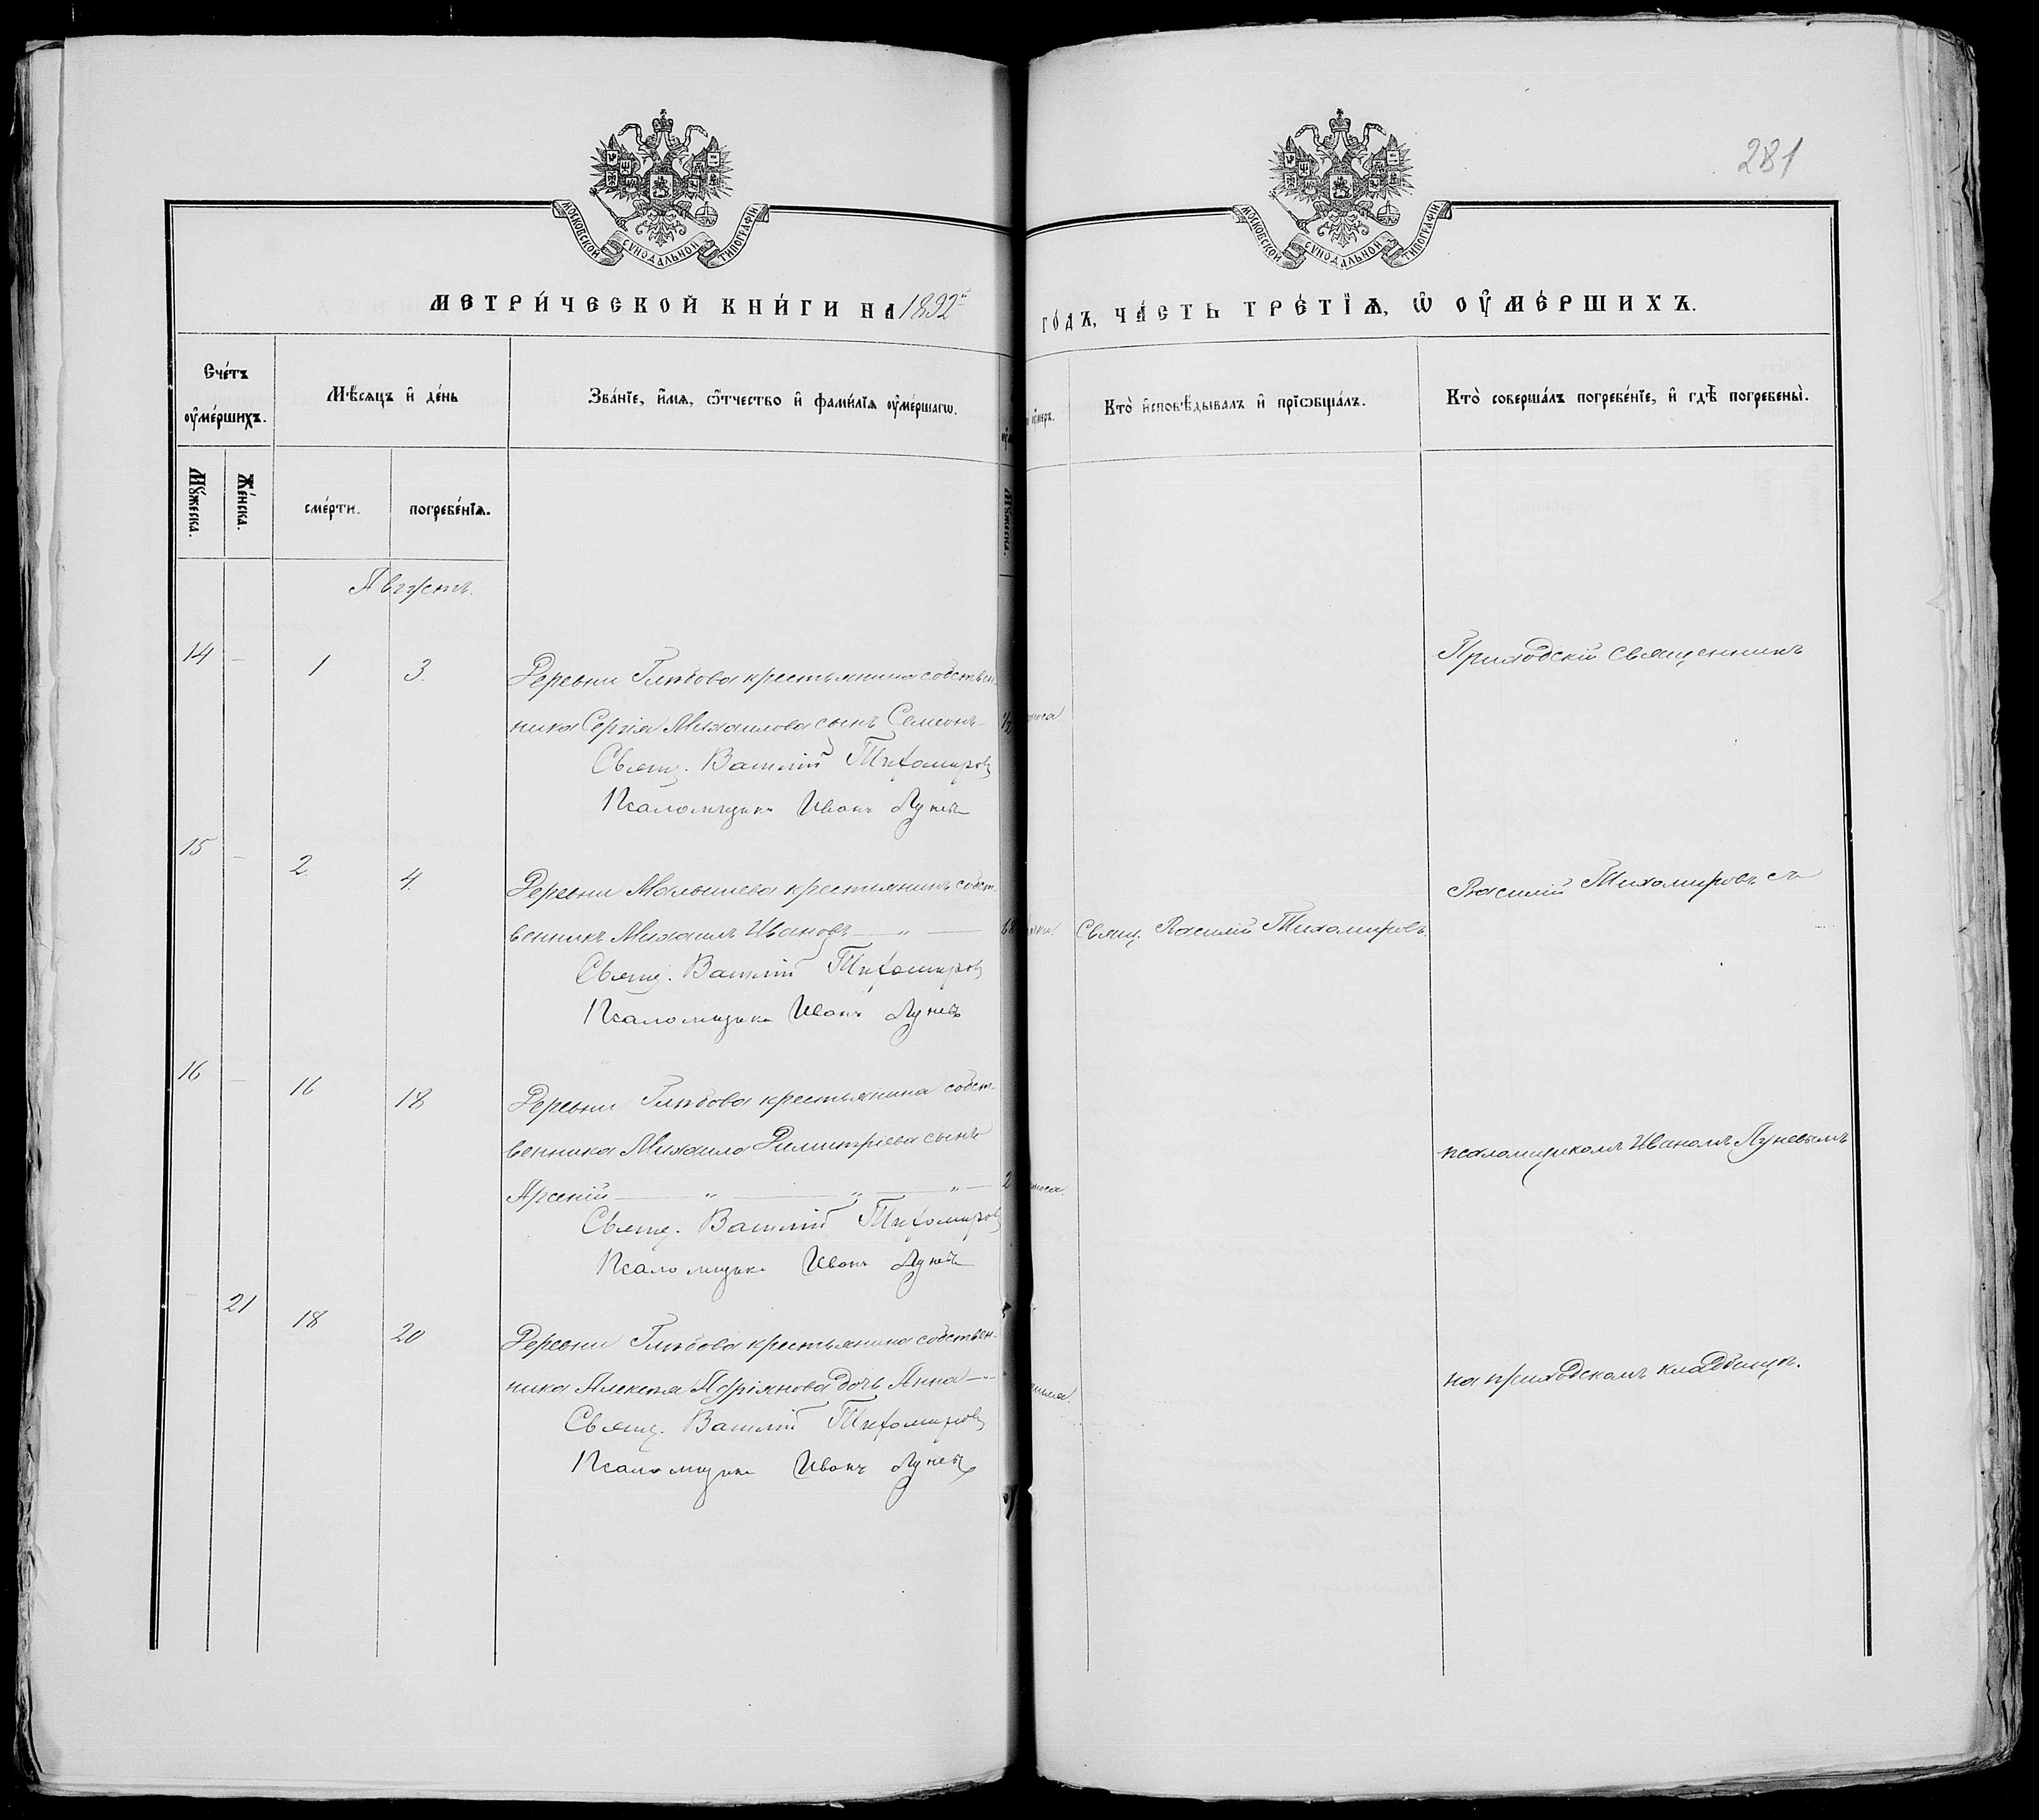 281
МОСКОВСКОЙ СѴНОДАЛЬНОЙ ТИПОГРАФІИ
МОСКОВСКОЙ СѴНОДАЛЬНОЙ ТИПОГРАФІИ
МЕТРИ́ЧЕСКОЙ КНИ́ГИ НА 1892й
ГО́ДЪ, ЧА́СТЬ ТРЕ́ТІѦ, Ѡ ОУ҆МЕ́РШИХЪ.
Сче́тъ оу҆ме́ршихъ.
Мѣ́сяцъ и҆ де́нь
Зва́нїе, и҆́мѧ, ѻ҆́тчество и҆ фами́лїѧ оу҆ме́ршагѡ.
Кто̀ и҆сповѣ́дывалъ и҆ прїѡбща́лъ.
Кто̀ соверша́лъ погребе́нїе, и҆ гдѣ̀ погребены̀.
Мꙋ́жеска.
Же́нска.
сме́рти.
погребе́нїѧ.
Августъ.
14 – 1 3. Деревни Глѣбова крестьянина собствен-
ника Сергія Михаилова сынъ Семеонъ – 1/2
Свящ. Василій Тихомировъ
Псаломщикъ Иванъ Луневъ
Приходскій священникъ
15 – 2. 4. Деревни Малышева крестьянинъ собст-
венникъ Михаилъ Ивановъ — „ — 68
Свящ. Василій Тихомировъ
Псаломщикъ Иванъ Луневъ
Свящ. Василій Тихомировъ.
Василій Тихомировъ съ
16 – 16 18 Деревни Глѣбова крестьянина собст-
венника Михаила Димитріева сынъ
Арсеній — „ — „ — „ — 2
Свящ. Василій Тихомировъ
Псаломщикъ Иванъ Луневъ
псаломщикомъ Иваномъ Луневымъ
– 21 18 20 Деревни Глѣбова крестьянина собствен-
ника Алексѣя Адріянова дочь Анна –
Свящ. Василій Тихомировъ
Псаломщикъ Иванъ Луневъ
на приходскомъ кладбищѣ.